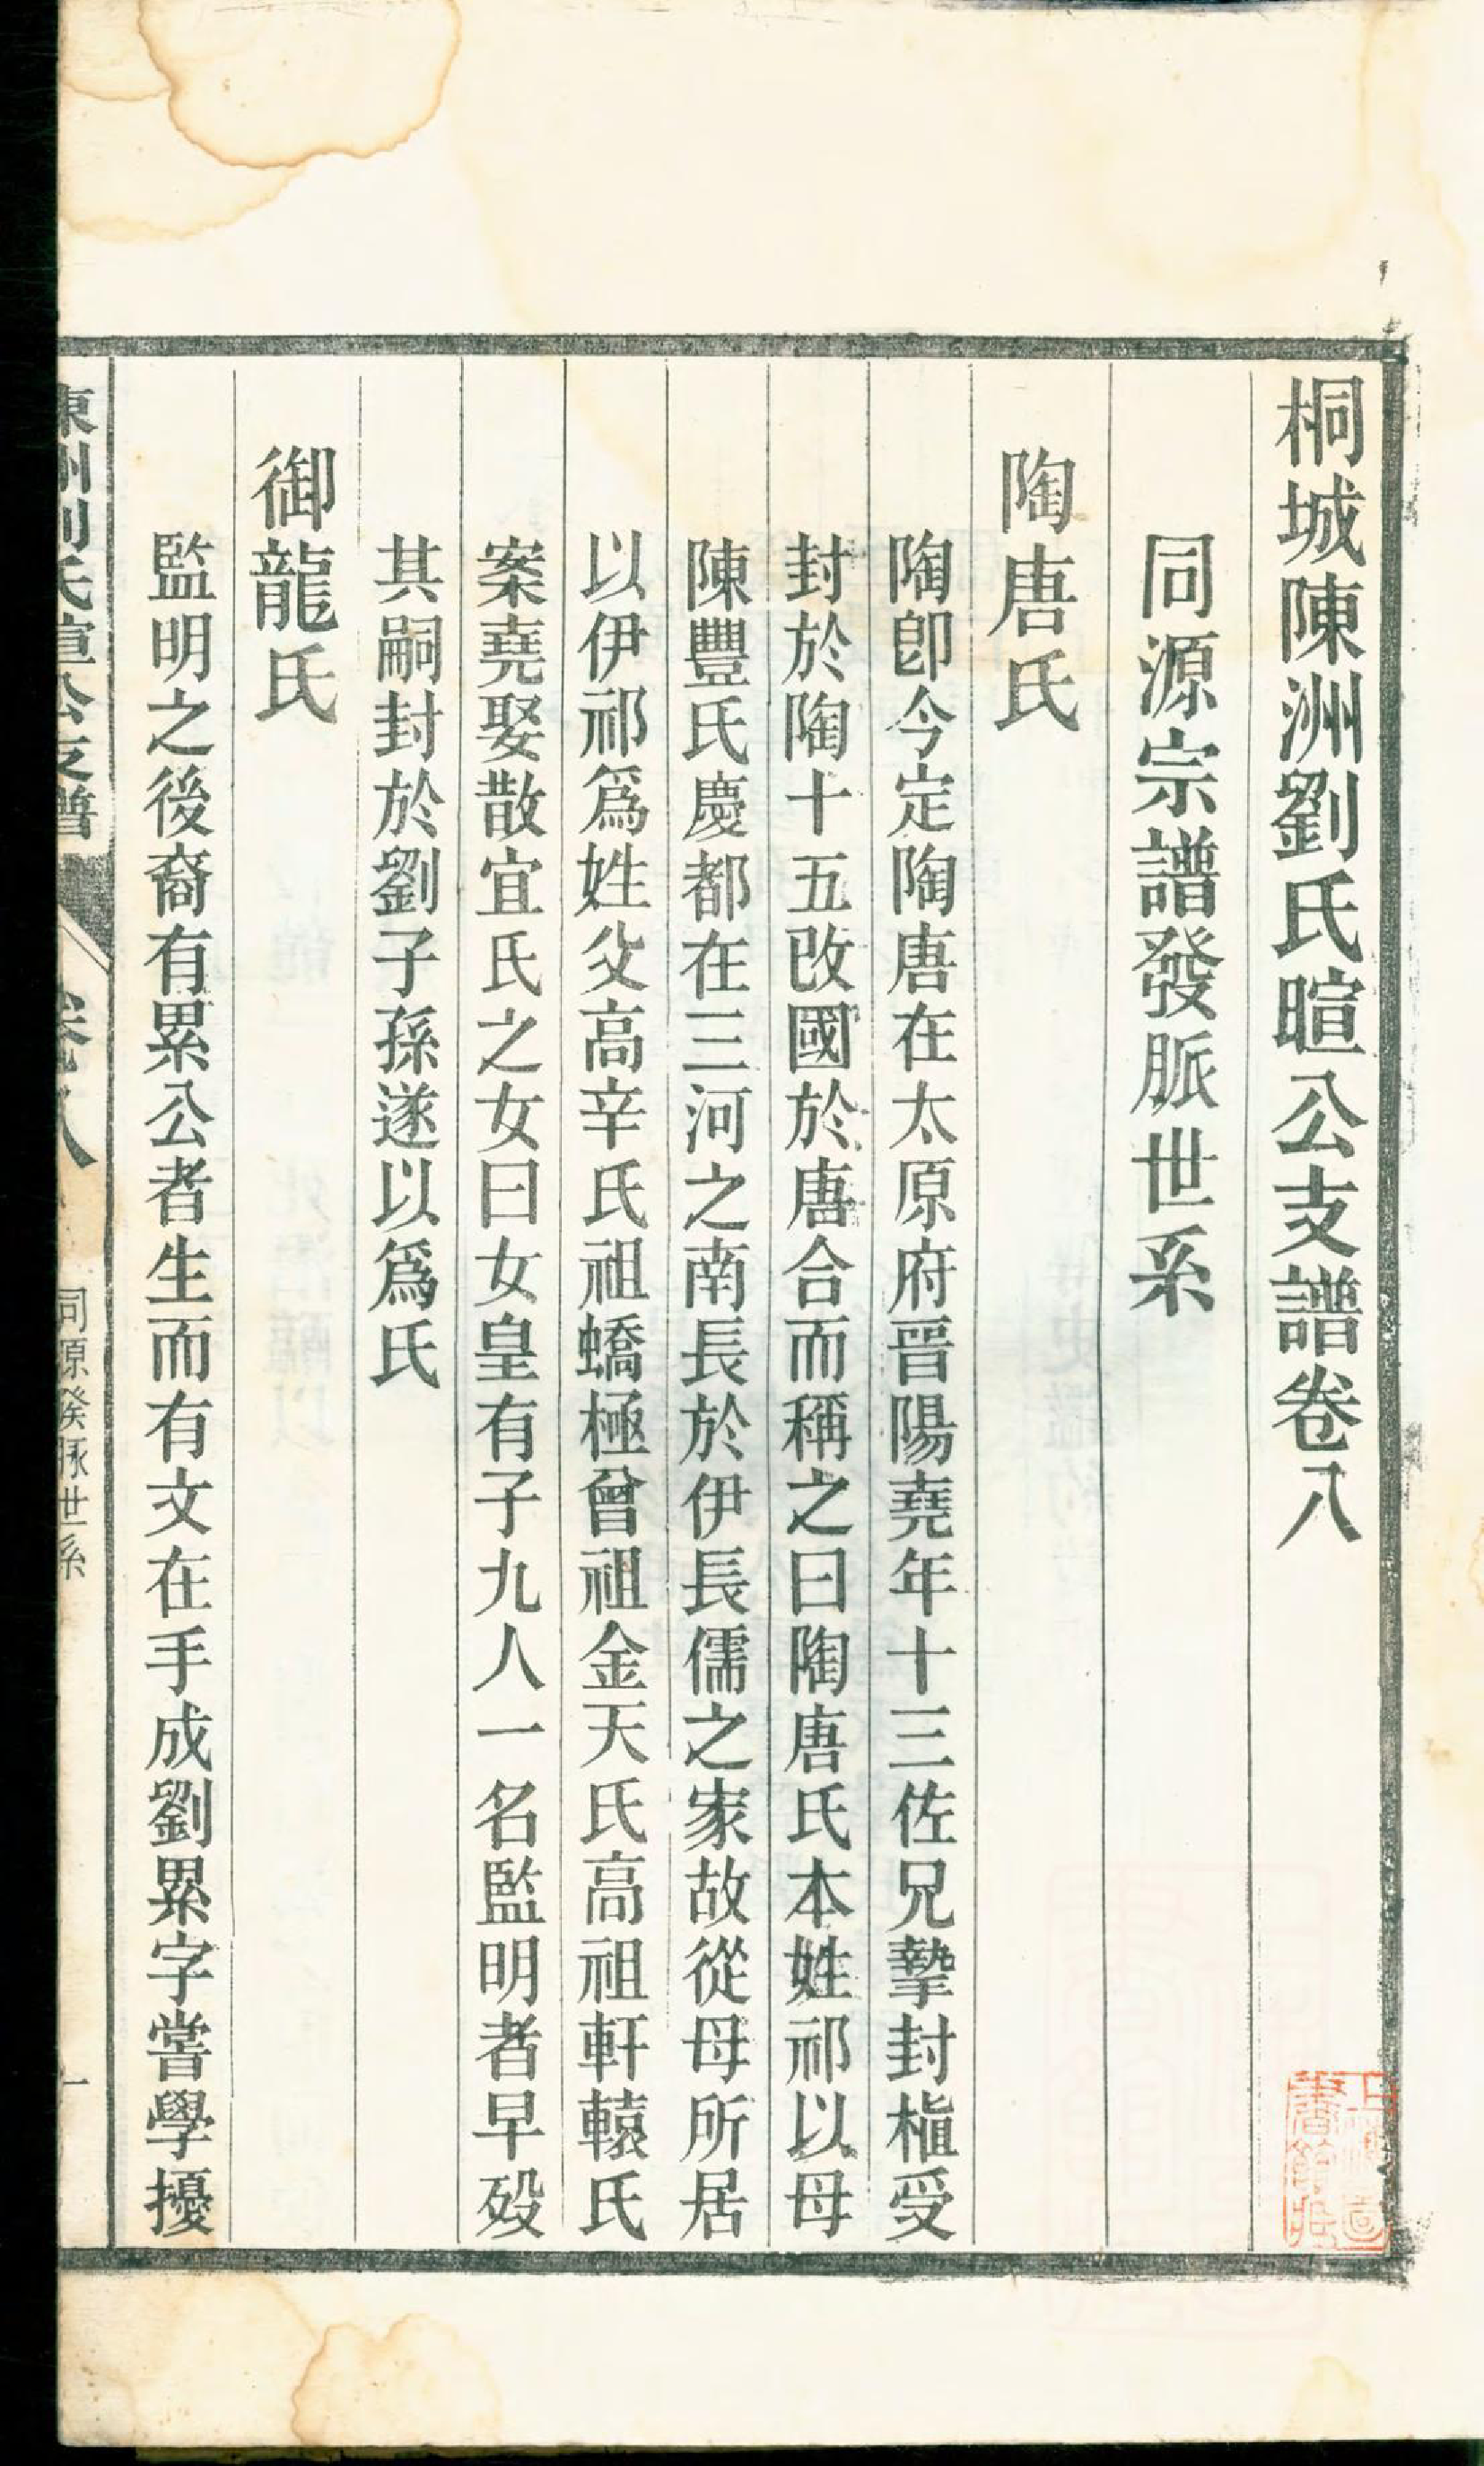 桐城陳洲劉氏暄公支譜卷八
同源宗譜發脈世系
陶唐氏
陶卽今定陶唐在太原府晉陽堯年十三佐兄摯封植受
封於陶十五改國於唐合而稱之曰陶唐氏本姓祁以母
陳豐氏慶都在三河之南長於伊長儒之家故從母所居
以伊祁爲姓父高辛氏祖蟜極曾祖金天氏高祖軒轅氏
案堯娶散宜氏之女曰女皇有子九人一名監明者早殁
其嗣封於劉子孫遂以爲氏
御龍氏
監明之後裔有累公者生而有文在手成劉累字嘗學擾
陳洲劉氏暄公支譜 卷八 同源發脈世系 一
上海圖書館藏